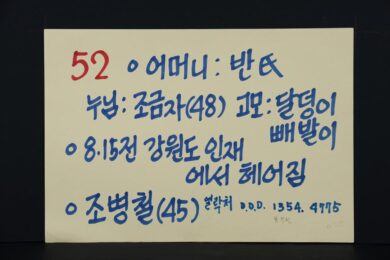 52 ○ 어머니 : 반氏
누님 : 조금자(48) 고모 : 달덩이
빼빨이
○ 8·15전 강원도 인재
에서 헤어짐
○ 조병철(45) 연락처 D.D.D. 1354. 4775